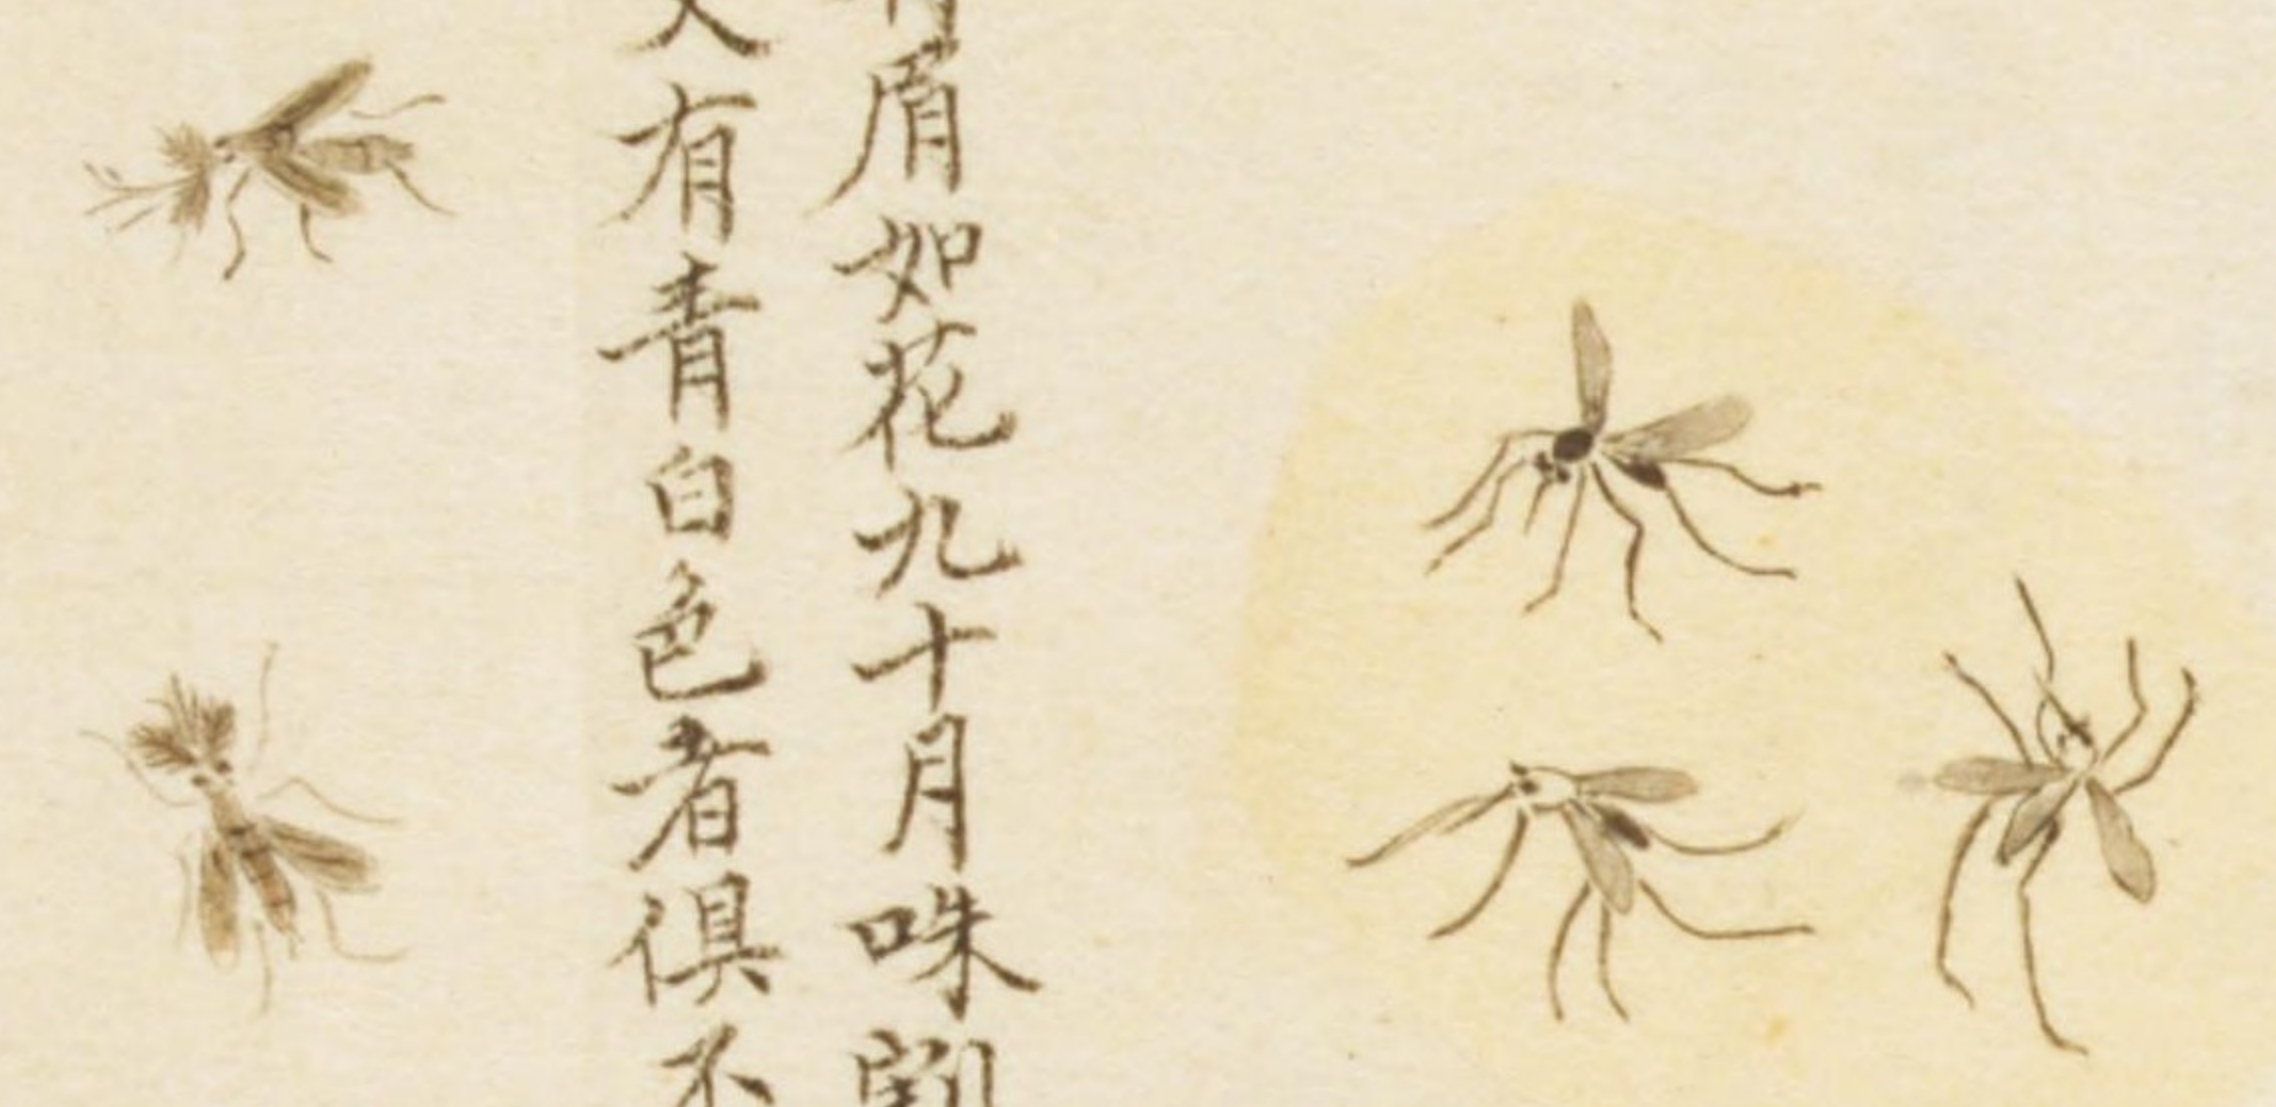 眉如花九十月咮
有青白色者俱不